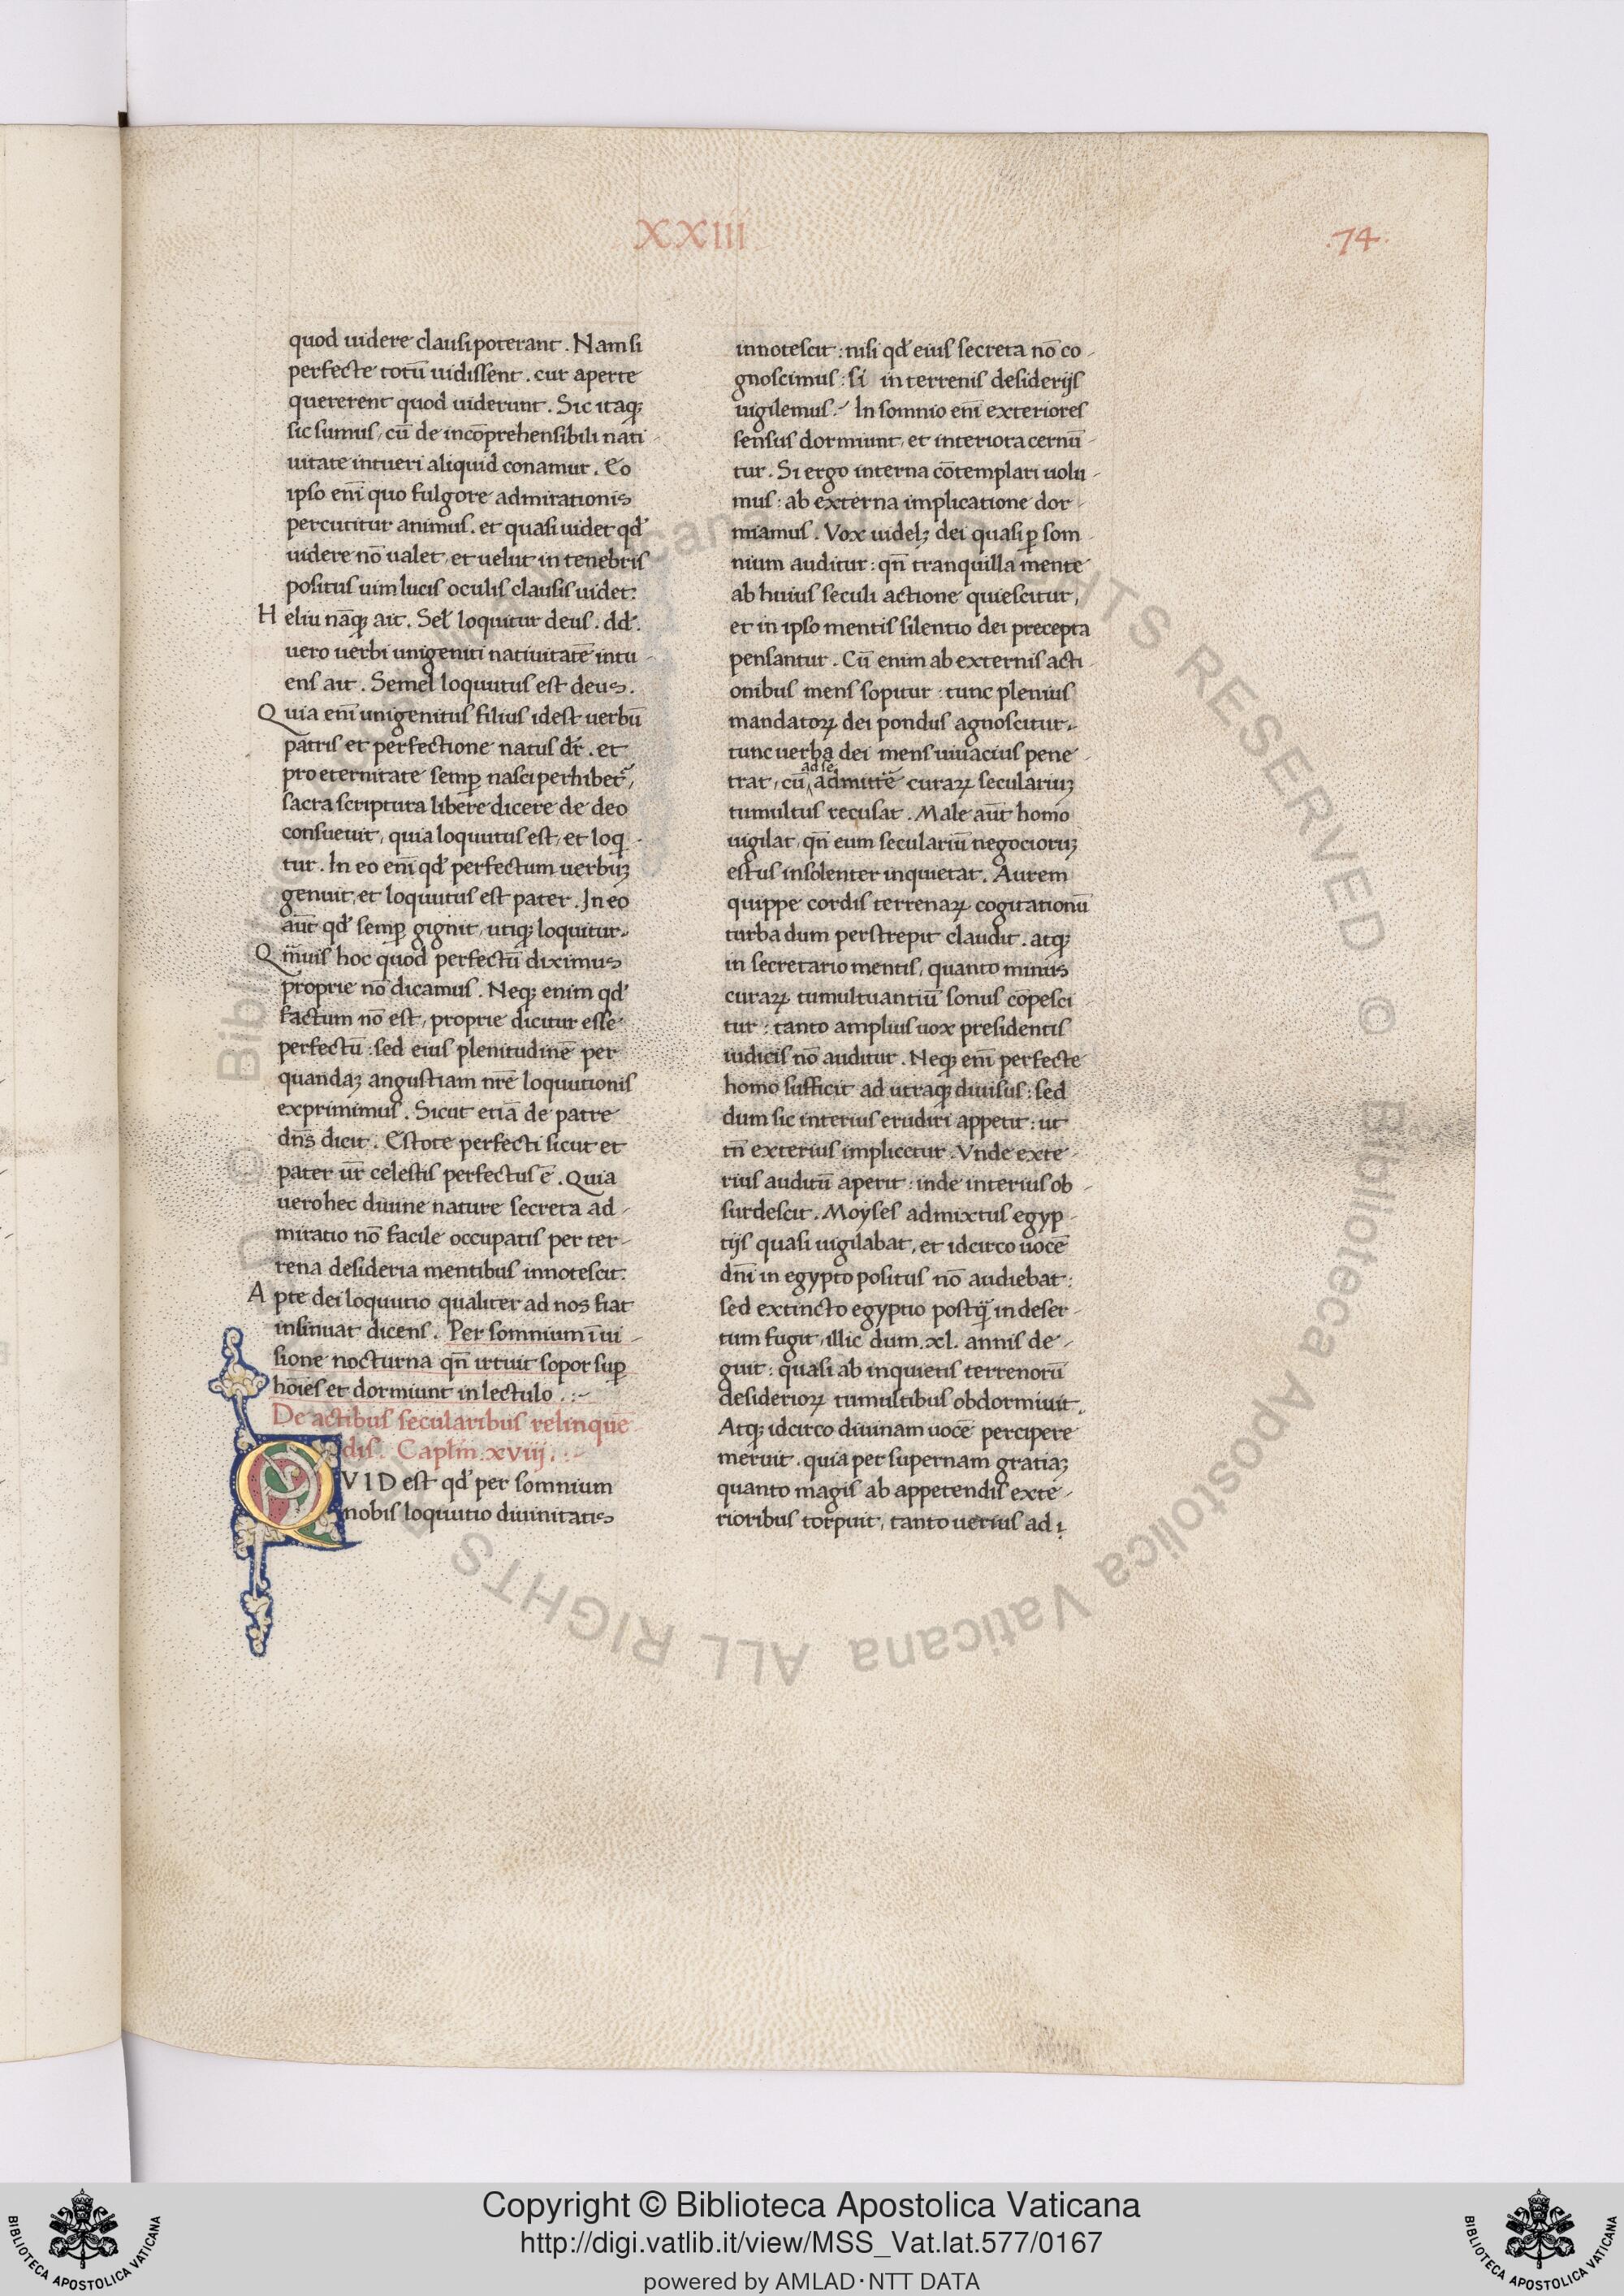 XXIII
.74.
quod uidere clausi poterant. Nam si
perfecte totū uidissent. cur aperte
quererent quod uiderunt. Sic itaqȝ
sic sumus, cū de incōprehensibili nati-
uitate intueri aliquid conamur. Eo
ipso enī quo fulgore admirationis
percutitur animus. et quasi uidet qd̓
uidere nō ualet, et uelut in tenebris
positus uim lucis oculis clausis uidet:
Heliu nāqȝ ait. Sel̓ loquitur deus. dd̓.
uero uerbi unigeniti natiuitatē intu-
ens ait. Semel loquutus est deus.
Quia enī unigenitus filius idest uerbū
patris et perfectione natus dr̄. et
pro eternitate semꝑ nasci perhibet᷑,
sacra scriptura libere dicere de deo
consueuit, quia loquutus est, et loq̄-
tur. In eo enī qd̓ perfectum uerbuȝ
genuit, et loquutus est pater. In eo
aūt qd̓ semꝑ gignit, utiqȝ loquitur.
Qm̄uis hoc quod perfectū diximus
proprie nō dicamus. Neqȝ enim qd̓
factum nō est, proprie dicitur esse
perfectū: sed eius plenitudinē per
quandaȝ angustiam nr̄e loquutionis
exprimimus. Sicut etiā de patre
dn̄s dicit. Estote perfecti sicut et
pater ur̄ celestis perfectus ē. Quia
uero hec diuine nature secreta ad-
miratio nō facile occupatis per ter-
rena desideria mentibus innotescit:
Apte dei loquutio qualiter ad nos fiat
insinuat dicens. Per somnium ī ui-
sione nocturna qn̄ irruit sopor suꝑ
hoīes et dormiunt in lectulo.:-
De actibus secularibus relinquē-
dis. Caplm̄.xviij.:-
QVID est qd̓ per somnium
nobis loquutio diuinitatis
innotescit: nisi qd̓ eius secreta nō co-
gnoscimus: si in terrenis desiderijs
uigilemus. In somnio enī exteriores
sensus dormiunt, et interiora cernū-
tur. Si ergo interna cōtemplari uolu-
mus: ab externa implicatione dor-
miamus. Vox uidelȝ dei quasi ꝑ som-
nium auditur: qn̄ tranquilla mente
ab huius seculi actione quiescitur,
et in ipso mentis silentio dei precepta
pensantur. Cū enim ab externis acti-
onibus mens sopitur: tunc plenius
mandatoꝝ dei pondus agnoscitur.
tunc uerba dei mens uiuacius pene-
ad se
trat, cū admittē curaꝝ seculariuȝ
tumultus recusat. Male aūt homo
uigilat, qn̄ eum seculariū negocioruȝ
estus insolenter inquietat. Aurem
quippe cordis terrenaꝝ cogitationū
turba dum perstrepit claudit. atqȝ
in secretario mentis, quanto minus
curaꝝ tumultuantiū sonus cōpesci-
tur: tanto amplius uox presidentis
iudicis nō auditur. Neqȝ enī perfecte
homo sufficit ad utraqȝ diuisus: sed
dum sic interius erudiri appetit: ut
tn̄ exterius implicetur. Vnde exte-
rius auditū aperit: inde interius ob-
surdescit. Moyses admixtus egyp-
tijs quasi uigilabat, et idcirco uocē
dn̄i in egypto positus nō audiebat:
sed extincto egyptio postq̄ in deser-
tum fugit, illic dum.xl. annis de-
guit: quasi ab inquietis terrenorū
desiderioꝝ tumultibus obdormiuit.
Atqȝ idcirco diuinam uocē percipere
meruit. quia per supernam gratiaȝ
quanto magis ab appetendis exte-
rioribus torpuit, tanto uerius ad i
Copyright © Biblioteca Apostolica Vaticana
http://digi.vatlib.it/view/MSS_Vat.lat.577/0167
powered by AMLAD·NTT DATA
BIBLIOTECA APOSTOLICA VATICANA
BIBLIOTECA APOSTOLICA VATICANA